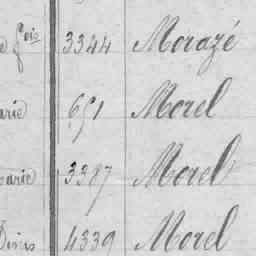 fois 3344 Morazé
arie 691 Morel
arie 3387 Morel
Denis 4339 Morel